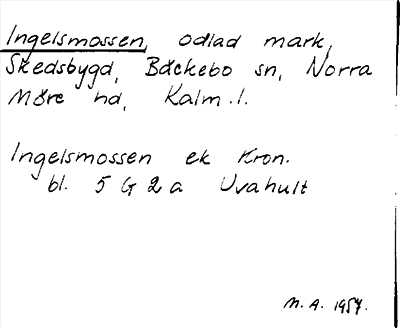 Ingelsmossen, odlad mark,
Skedsbygd, Bäckebo sn, Norra
Möre hd, Kalm. l.
Ingelsmossen ek Kron.
bl. 5 G 2 a Uvahult
M. A. 1957.